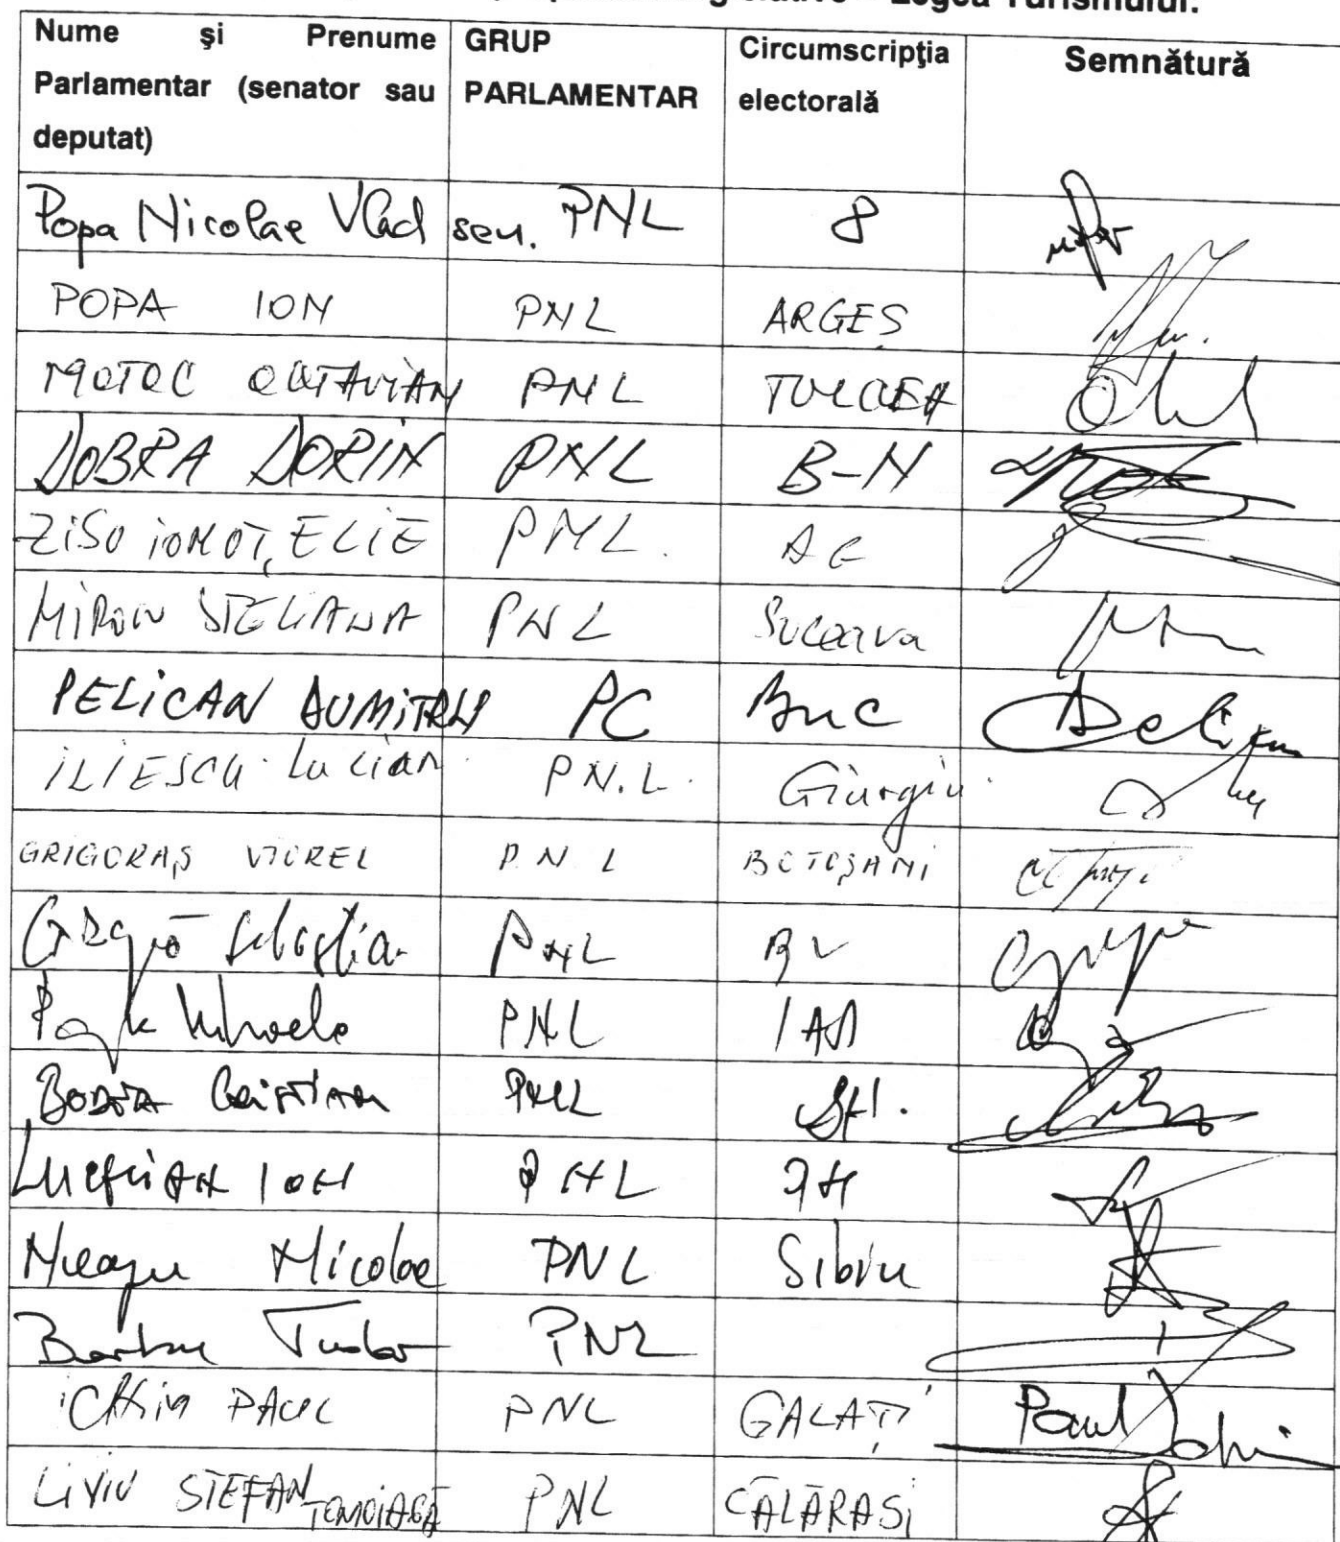 Legea Turismului.
Nume și Prenume Parlamentar (senator sau deputat) GRUP PARLAMENTAR Circumscripţia electorală Semnătură
Popa Nicolae Vlad sen. PNL 8
POPA ION PNL ARGEȘ
MOTOC OCTAVIAN PNL TULCEA
DOBRA DORIN PNL B-N
ZISU IONUȚ ELIE PNL. AG
MIRON STELIANA PNL Suceava
PELICAN DUMITRU PC Buc
ILIESCU Lucian PN.L. Giurgiu
GRIGORAȘ VIOREL PNL BOTOȘANI
PNL BV
PNL IAȘI
BODEA Cristian PNL
ION PNL
Neagu Nicolae PNL Sibiu
Barbu Tudor PNL
ICHIM PAUL PNL GALAȚI Paul
LIVIU STEFAN TOMOIAGĂ PNL CĂLĂRAȘI